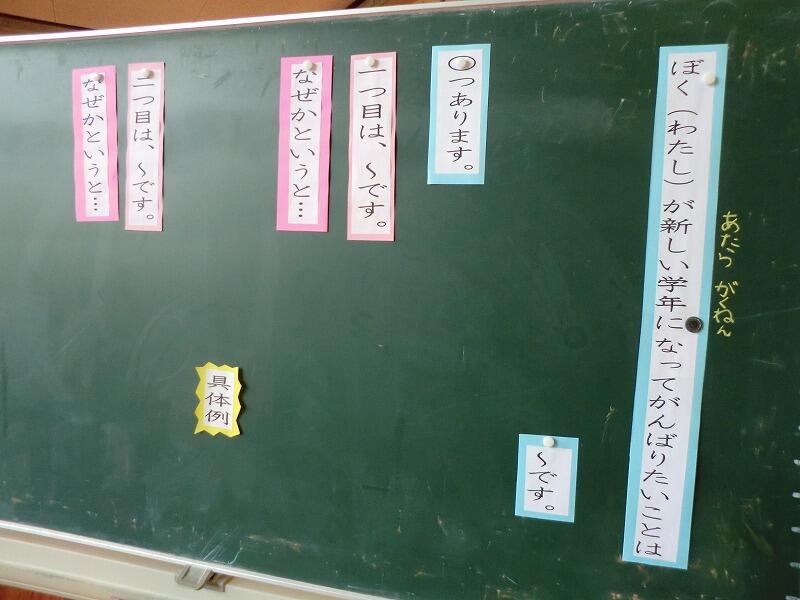 ぼく（わたし）が新しい学年になってがんばりたいことは
あたら がくねん
〜です。
〇つあります。
一つ目は、〜です。
なぜかというと…
具体例
二つ目は、〜です。
なぜかというと…